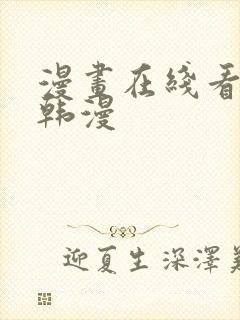 漫畫在綫看
韩漫
迎夏生深澤